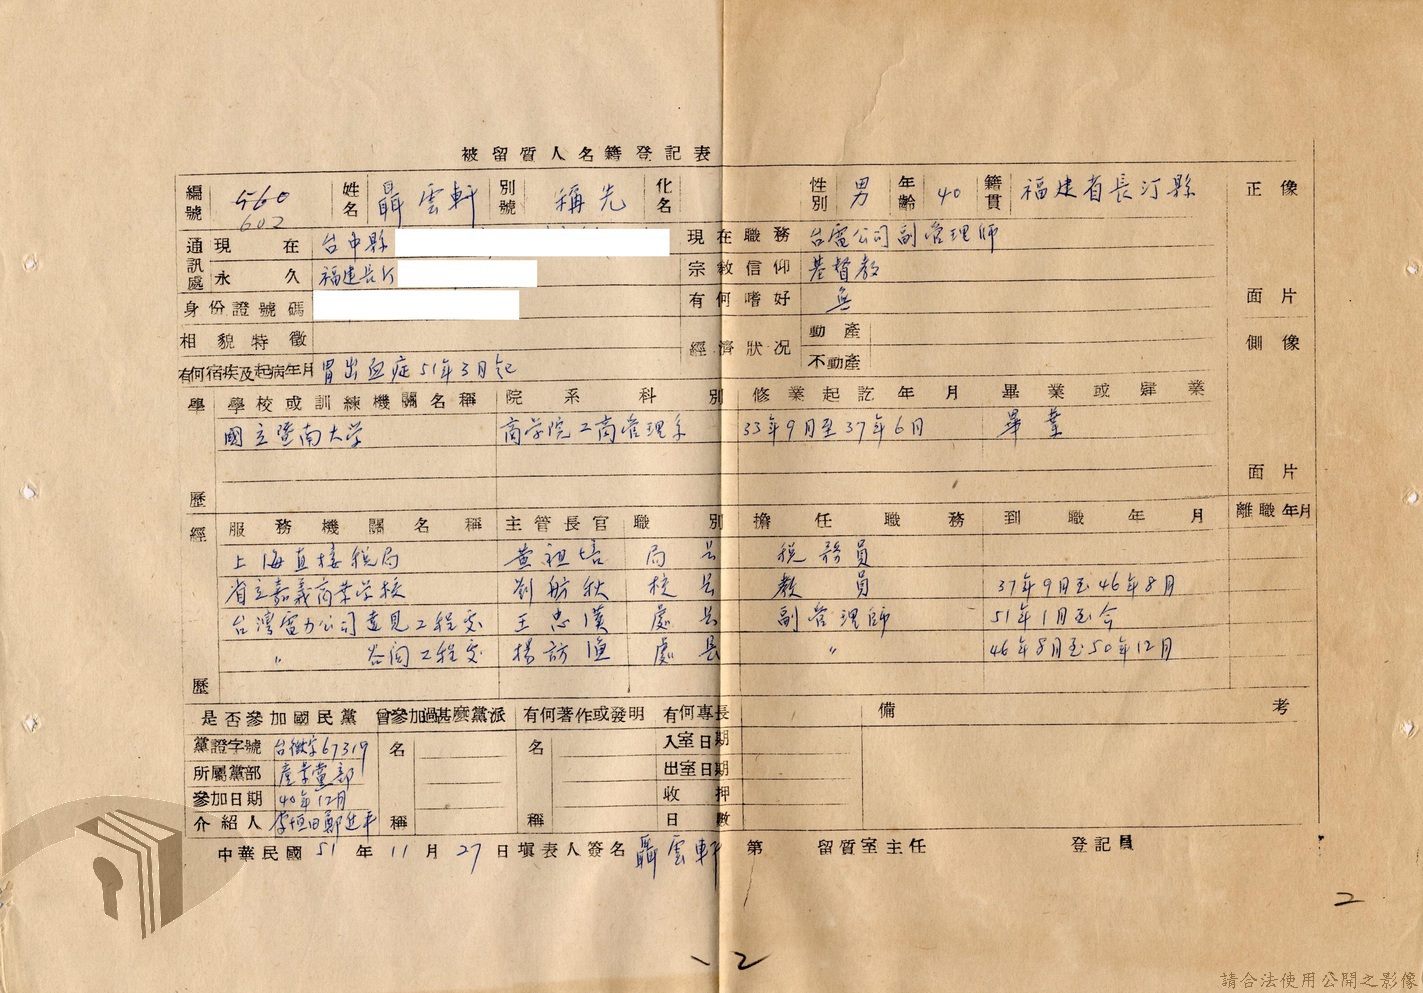 被留質人名籍登記表
編號 560 602 姓名 聶雲軒 別號 稱先 化名 性別 男 年齡 40 籍貫 福建省長汀縣 正像
通訊處 現在 台中縣 現在職務 台電公司副管理師
永久 福建長汀 宗教信仰 基督教
身份證號碼 有何嗜好 無 面片
相貌特徵 經濟狀況 動產 側像
有何宿疾及起病年月 胃出血症51年3月起 不動產
學歷 學校或訓練機關名稱 院系科別 修業起訖年月 畢業或肄業
國立暨南大学 商学院工商管理系 33年9月至37年6月 畢業
面片
經歷 服務機關名稱 主管長官 職別 擔任職務 到職年月 離職年月
上海直接税局 黄祖培 局長 税務員
省立嘉義商業学校 劉舫秋 校長 教員 37年9月至46年8月
台灣電力公司達見工程處 王忠漢 處長 副管理師 51年1月至今
〃 谷関工程處 楊訪漁 處長 〃 46年8月至50年12月
是否參加國民黨 曾參加過甚麼黨派 有何著作或發明 有何專長 備考
黨證字號 台徵字67319 名稱 名稱 入室日期
所屬黨部 產業黨部 出室日期
參加日期 40年12月 收押日數
介紹人 李恒田鄭進平
中華民國51年11月27日填表人簽名 聶雲軒 第 留質室主任 登記員
2
2
請合法使用公開之影像